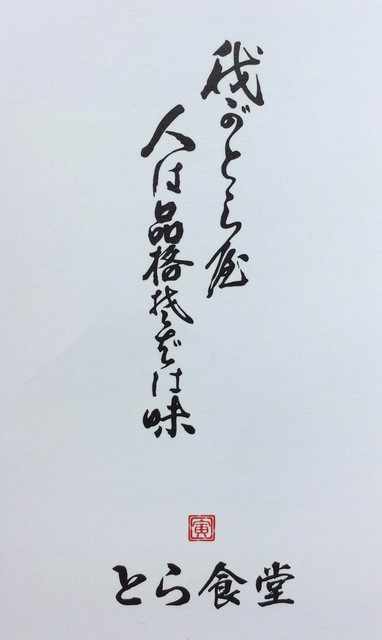 我がとら屋
人は品格そばは味
寅
とら食堂